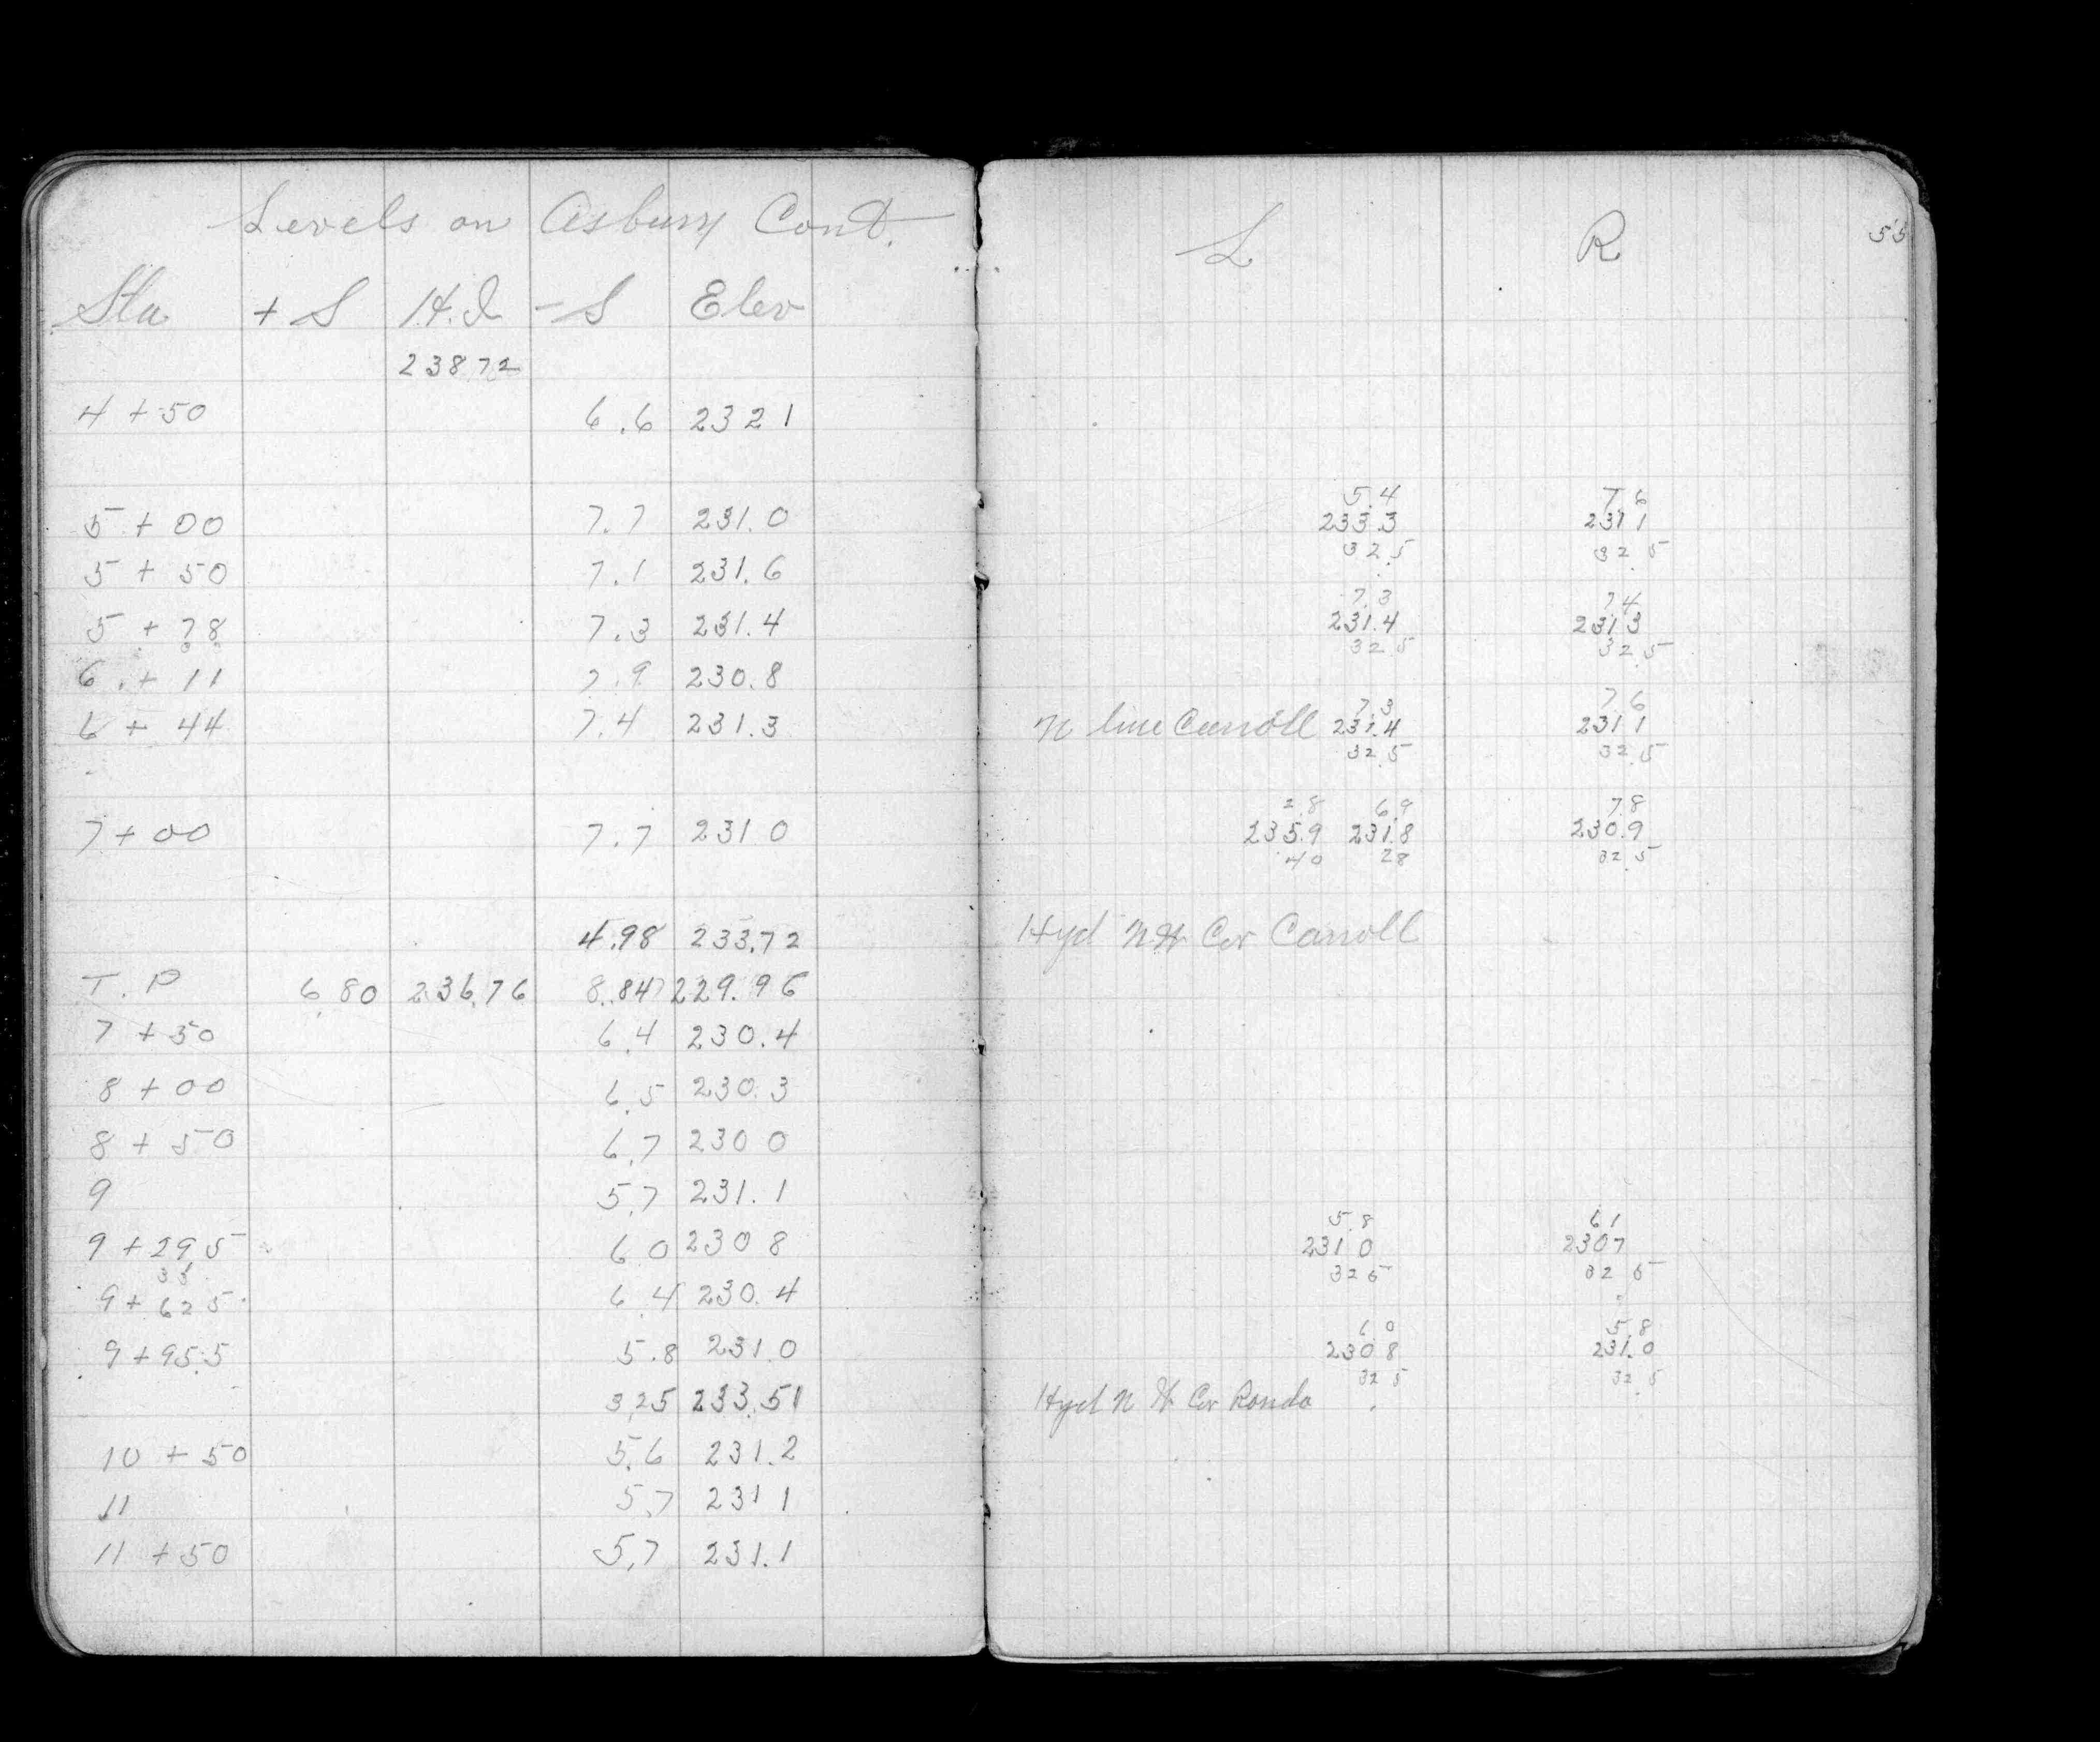 Levels on Asbury Cont.
L R 55
Sta + S H.I - S Elev
238 72
4 + 50 6.6 232 1
5.4 7.6
5 + 00 7.7 231.0 233.3 231 1
32 5 32 5
5 + 50 7.1 231.6
7.3 7.4
5 + 78 7.3 231.4 231.4 231 3
32 5 32.5
6 + 11 7.9 230.8
7.3 7.6
6 + 44 7.4 231.3 N line Carroll 231.4 231 1
32.5 32.5
2.8 6.9 7.8
7 + 00 7.7 231 0 235.9 231.8 230.9
40 28 32.5
4.98 233.72 Hyd N W Cor Carroll
T.P 6.80 236.76 8.84 229.96
7 + 50 6.4 230.4
8 + 00 6.5 230.3
8 + 50 6.7 230 0
9 5.7 231.1
5.8 6 1
9 + 29 5 6 0 230 8 231 0 230 7
33 32 5 32 5
9 + 62 5 6.4 230.4
6.0 5.8
9 + 95.5 5.8 231.0 230 8 231.0
32 5 32 5
3.25 233.51 Hyd N W Cor Rondo
10 + 50 5.6 231.2
11 5.7 231 1
11 + 50 5.7 231.1